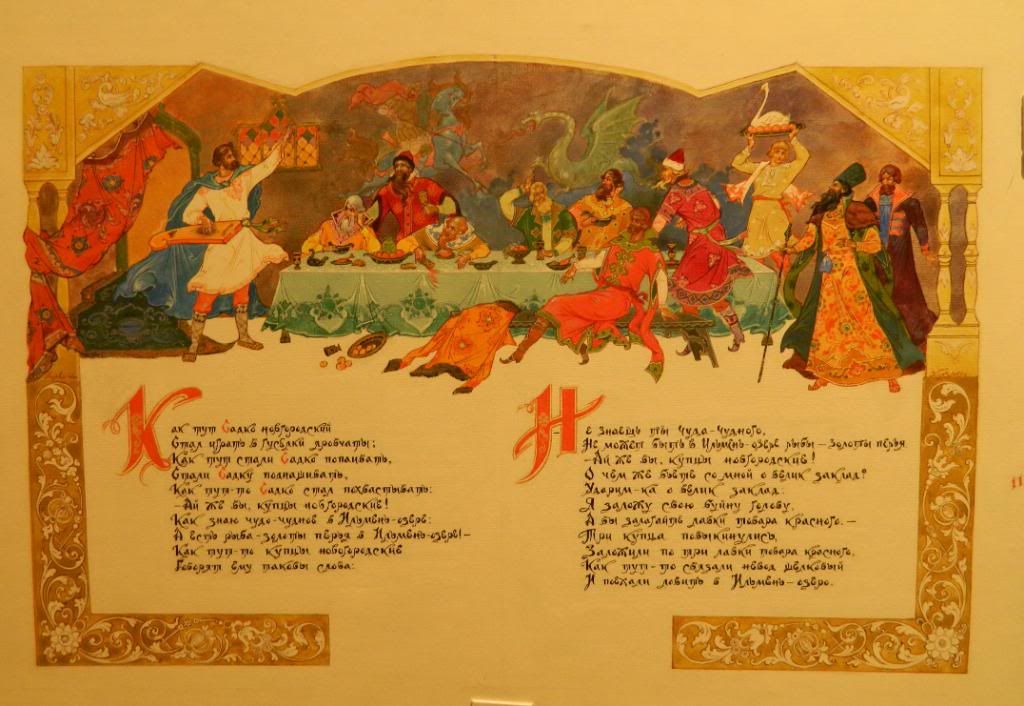 Как тут Садко новгородский
Стал играть в гусельки яровчаты;
Как тут стали Садко попаивать,
Стали Садку поднашивать,
Как тут-то Садко стал похвастывать:
—Ай же вы, купцы новгородские!
Как знаю чудо-чудное в Ильмень-озере:
А есть рыба-золоты перья в Ильмень-озере!—
Как тут-то купцы новгородские
Говорят ему таковы слова:
Не знаешь ты чуда-чудного,
Не может быть в Ильмень-озере рыбы—золоты перья.
—Ай же вы, купцы новгородские!
О чём же бьёте со мной о велик заклад?
Ударим-ка о велик заклад:
Я заложу свою буйну голову,
А вы залагайте лавки товара красного.—
Три купца повыкинулись,
Заложили по три лавки товара красного,
Как тут-то связали невод шелковый
И поехали ловить в Ильмень-озеро.
11